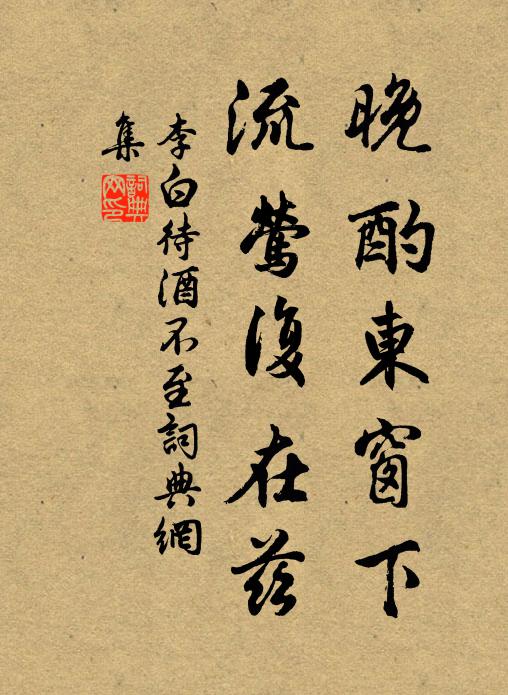 晚酌東窗下
流鶯復在茲
李白待酒不至詞典網
集
詞典
网印